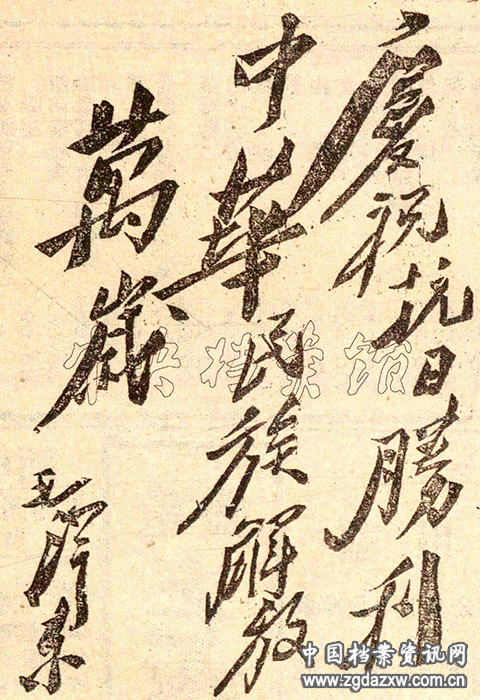 慶祝抗日勝利
中華民族解放
萬歲
毛澤東
中央档案馆
中国档案资讯网
www.zgdazxw.com.cn